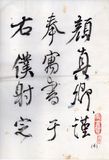 顔真卿謹
奉寓書于
右僕射定